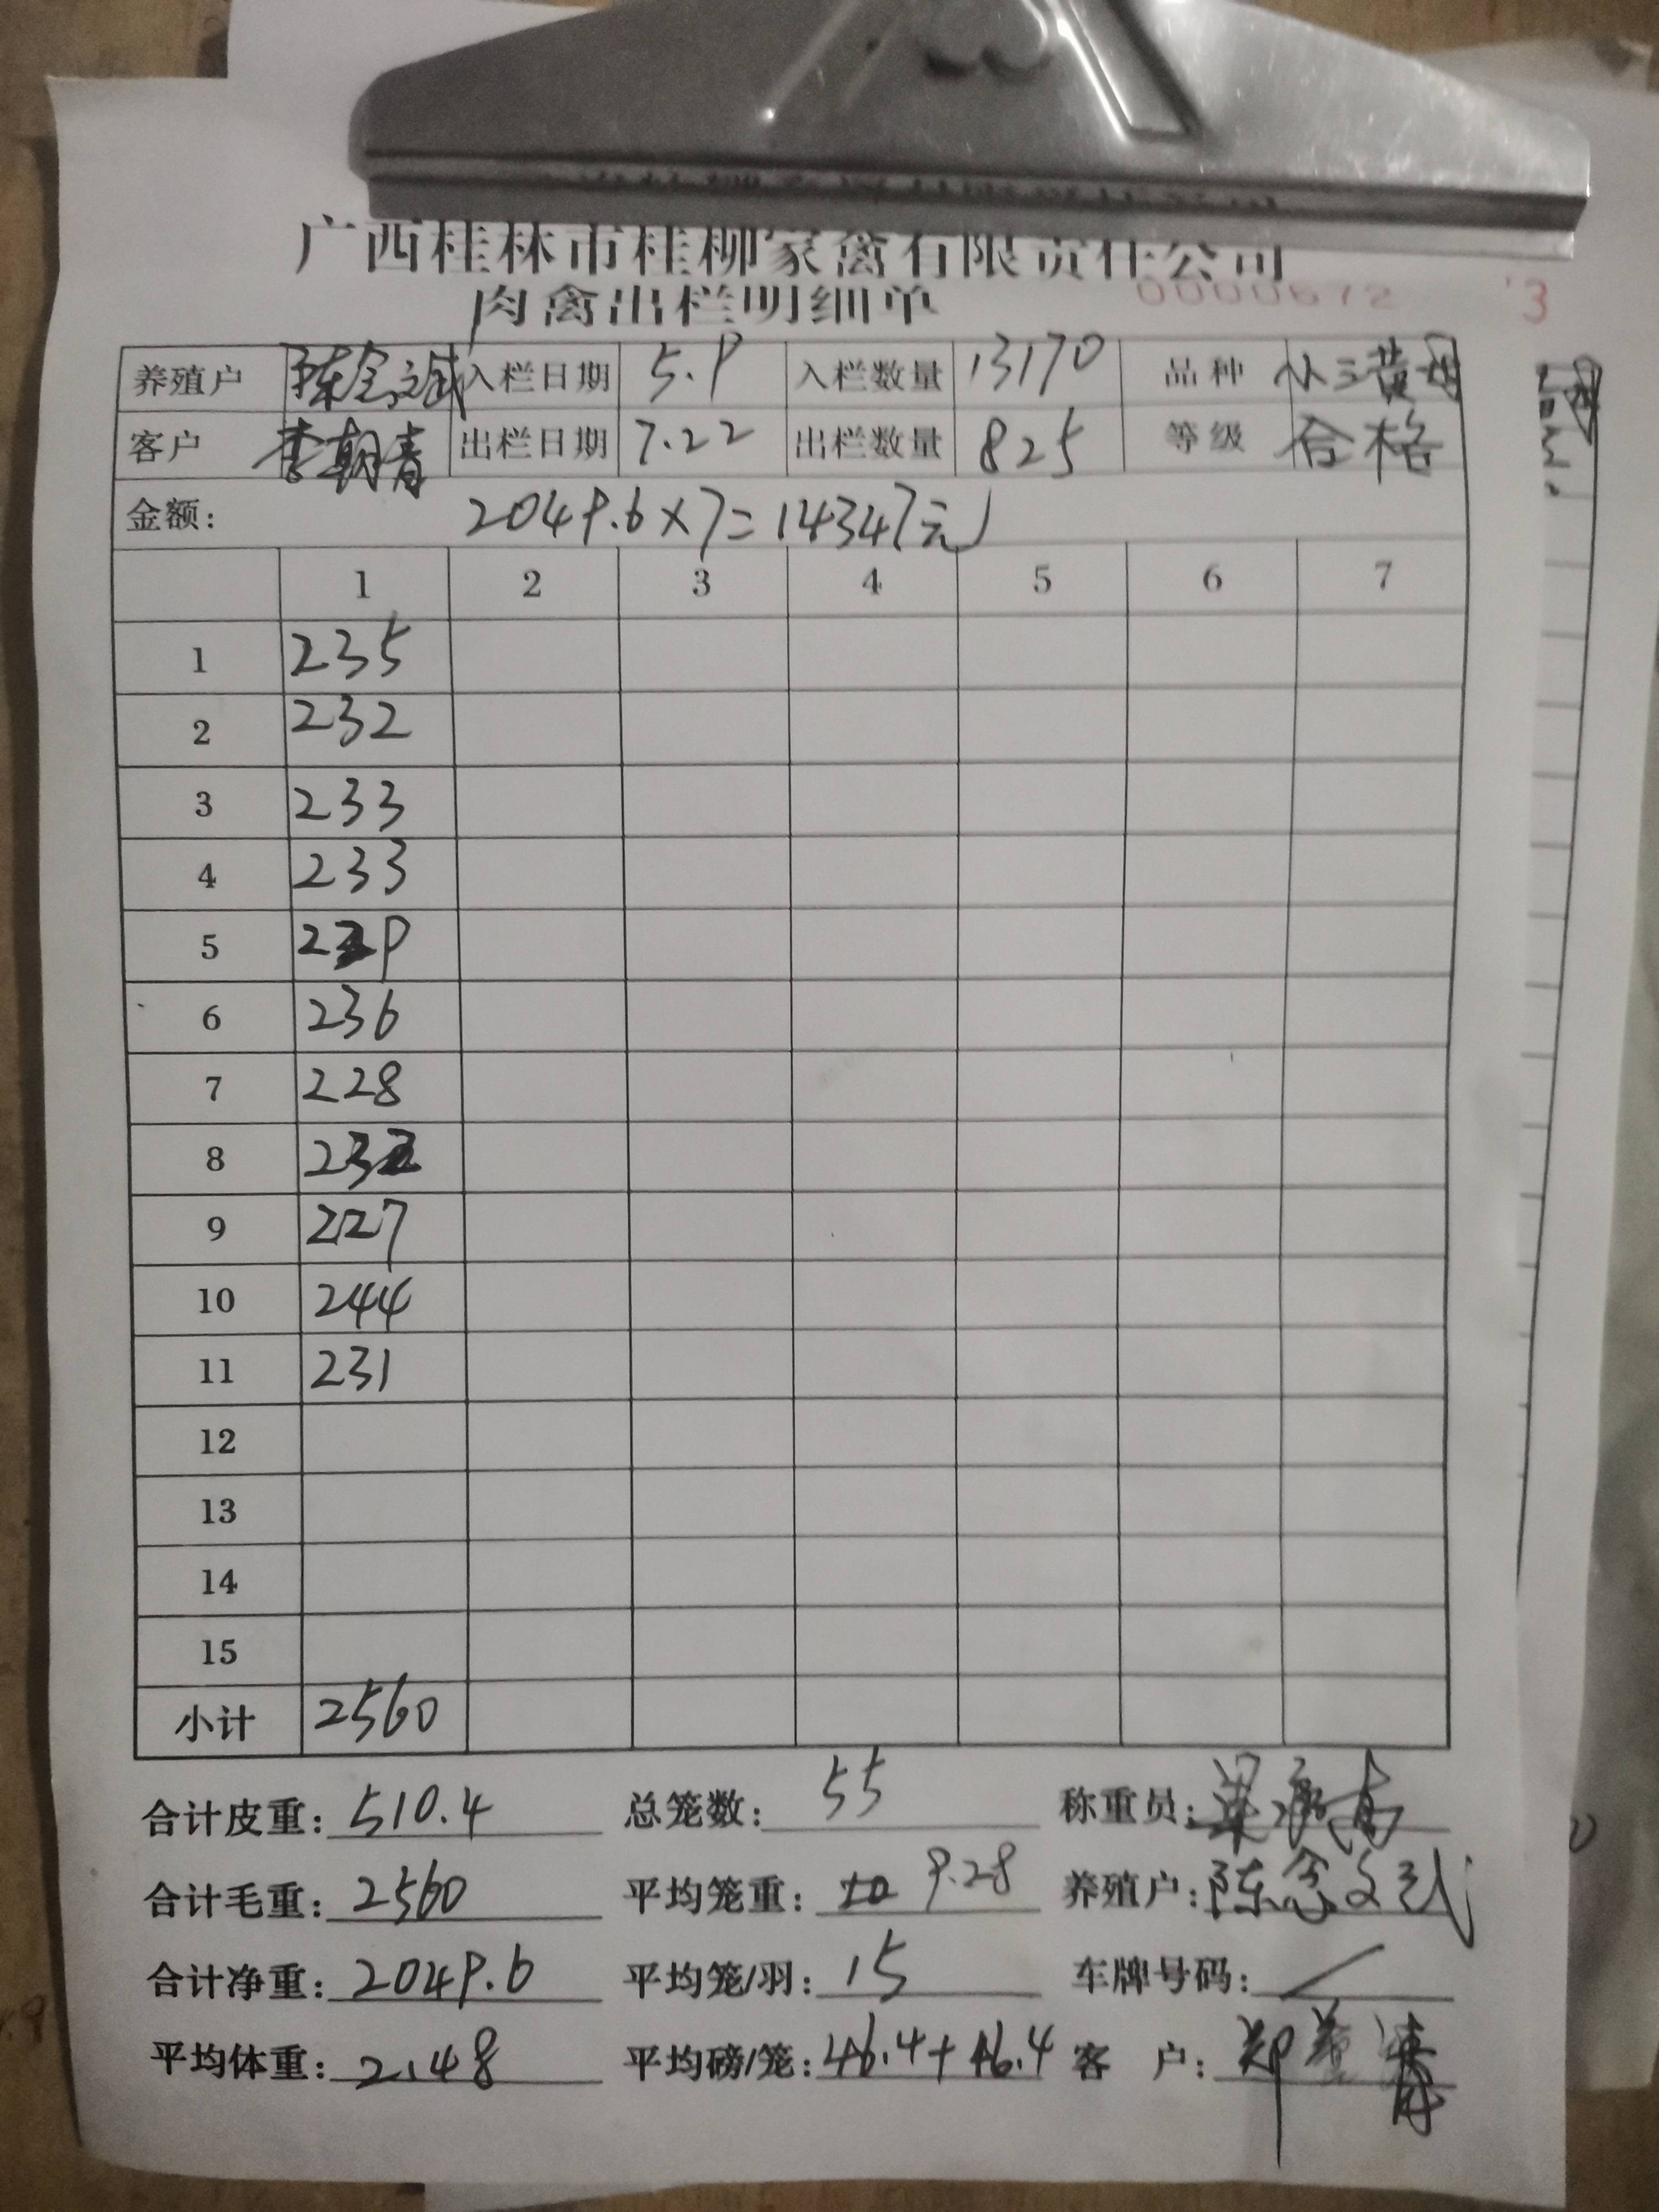 广西桂林市桂柳家禽有限责任公司
肉禽出栏明细单 0000672 3
养殖户 陈念文武 入栏日期 5.9 入栏数量 13170 品种 小三黄母
客户 李朝青 出栏日期 7.22 出栏数量 825 等级 合格
金额: 2049.6×7=14347元
1 2 3 4 5 6 7
1 235
2 232
3 233
4 233
5 229
6 236
7 228
8 232
9 227
10 244
11 231
12
13
14
15
小计 2560
合计皮重: 510.4 总笼数: 55 称重员:
合计毛重: 2560 平均笼重: 9.28 养殖户: 陈念文武
合计净重: 2049.6 平均笼/羽: 15 车牌号码: /
平均体重: 2.48 平均磅/笼: 46.4+46.4 客 户: